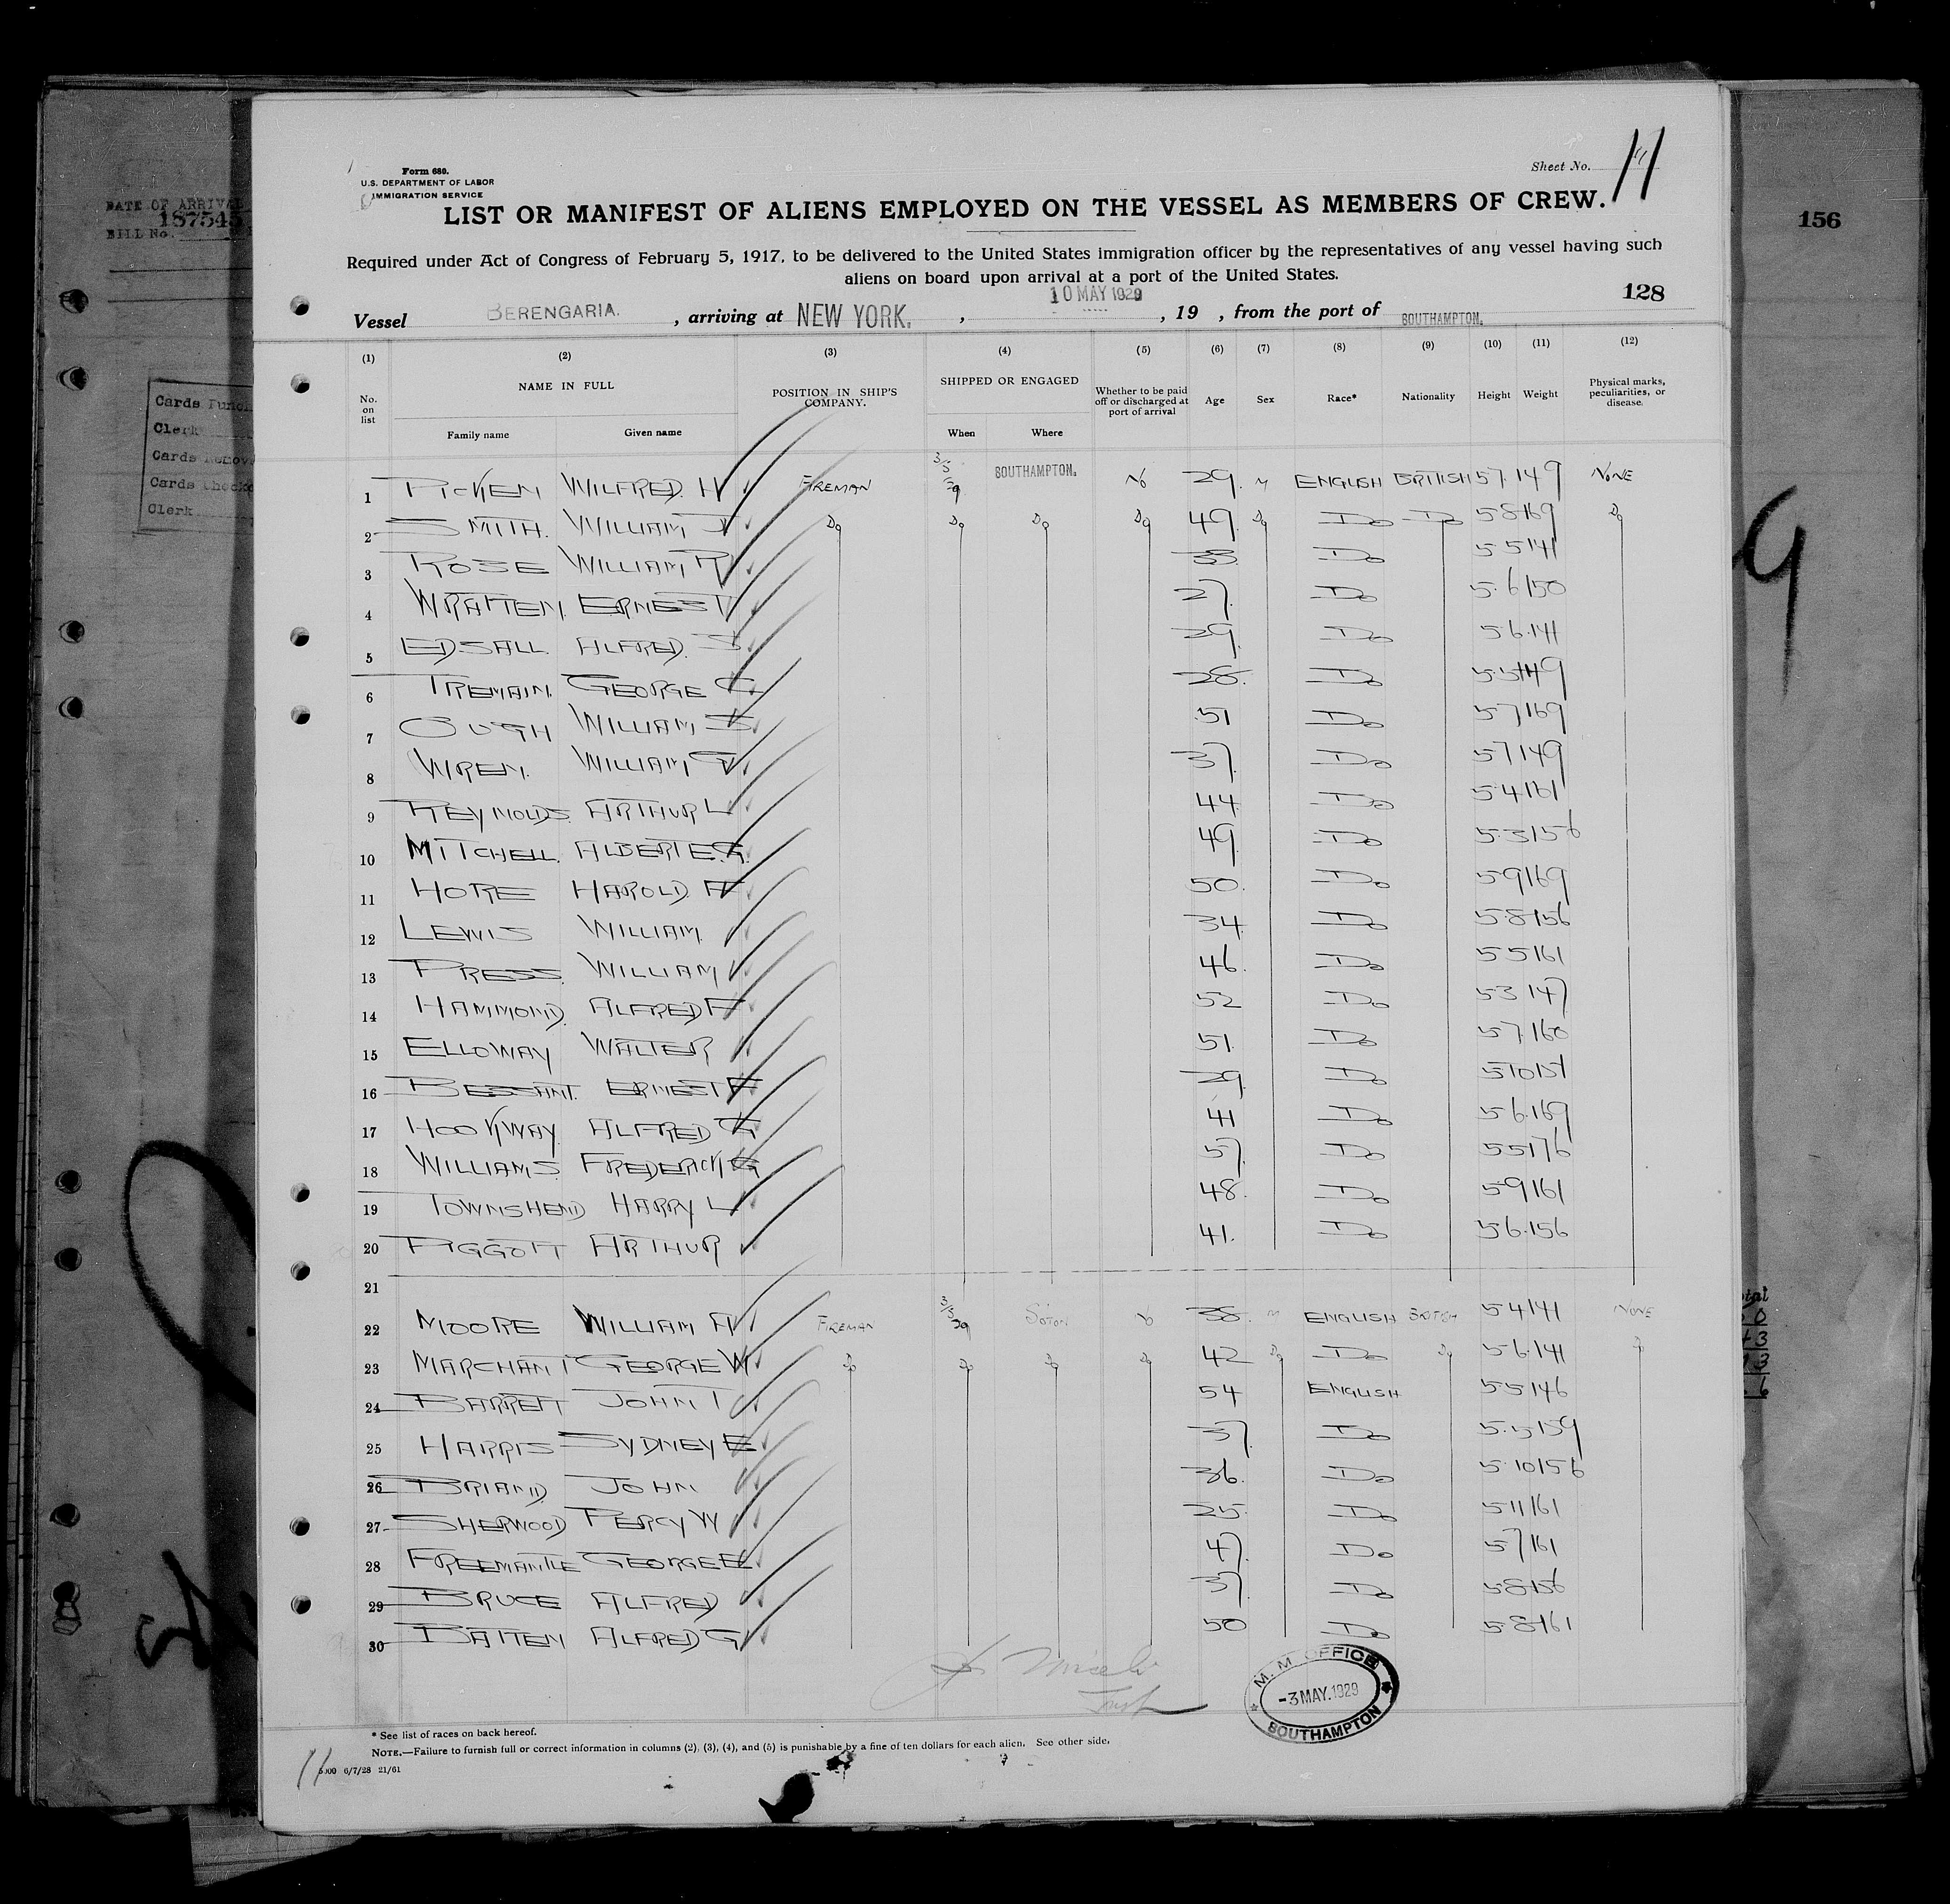 Form 680.
U.S. DEPARTMENT OF LABOR
IMMIGRATION SERVICE
Sheet No. 11
LIST OR MANIFEST OF ALIENS EMPLOYED ON THE VESSEL AS MEMBERS OF CREW.
Required under Act of Congress of February 5, 1917, to be delivered to the United States immigration officer by the representatives of any vessel having such
aliens on board upon arrival at a port of the United States.
128
156
DATE OF ARRIVAL
187545
BILL No.
Vessel BERENGARIA. , arriving at NEW YORK. , 10 MAY 1929 , 19 , from the port of SOUTHAMPTON.
(1) (2) (3) (4) (5) (6) (7) (8) (9) (10) (11) (12)
No. on list NAME IN FULL Family name Given name POSITION IN SHIP'S COMPANY. SHIPPED OR ENGAGED When Where Whether to be paid off or discharged at port of arrival Age Sex Race* Nationality Height Weight Physical marks, peculiarities, or disease.
Cards
Clerk
Cards
Cards
Clerk
1 PICKEN WILFRED. H FIREMAN 3/5 29 SOUTHAMPTON. No 29. M ENGLISH BRITISH 5 7 149 NONE
2 SMITH. WILLIAM J Do Do Do Do 49. Do Do Do 5 8 169 Do
3 ROSE WILLIAM R 38 Do 5 5 141
4 WRATTEN. ERNEST 27. Do 5. 6 150
5 EDSALL. ALFRED. S 29. Do 5 6. 141
6 TREMAIN. GEORGE C 28. Do 5. 5 149
7 OUGH WILLIAM S 51 Do 5 7 169
8 WREN. WILLIAM G 37. Do 5 7 149
9 REYNOLDS. ARTHUR L 44 Do 5 4 161
10 MITCHELL. ALBERT E.G. 49. Do 5. 3 156
11 HORE HAROLD. A 50. Do 5 9 169
12 LEWIS WILLIAM. 34 Do 5. 8 156
13 PRESS. WILLIAM 46. Do 5 5 161
14 HAMMOND. ALFRED F 52 Do 5 3 147
15 ELLOWAY WALTER 51. Do 5 7. 160
16 BESSANT. ERNEST F 29. Do 5 10 151
17 HOOKWAY. ALFRED G 41 Do 5 6. 169
18 WILLIAMS. FREDERICK G 57. Do 5 5 176
19 TOWNSHEND HARRY L 48. Do 5 9 161
20 PIGGOTT ARTHUR 41. Do 5 6. 156
21
22 MOORE WILLIAM A FIREMAN 3/5 29 SOTON No 38. M ENGLISH BRITISH 5 4 141 NONE
23 MARCHANT GEORGE W Do Do Do Do 42 Do Do Do 5 6. 141 Do
24 BARRETT JOHN T 54 ENGLISH 5 5 146
25 HARRIS SYDNEY E 37. Do 5. 5 159
26 BRIAND. JOHN 36. Do 5 10 156
27 SHERWOOD PERCY W 25. Do 5 11 161
28 FREEMANTLE GEORGE E 47. Do 5 7 161
29 BRUCE ALFRED 37. Do 5 8 156
30 BATTEN ALFRED G 50 Do 5 8 161
M. M. OFFICE
-3 MAY. 1929
SOUTHAMPTON
* See list of races on back hereof.
NOTE.—Failure to furnish full or correct information in columns (2), (3), (4), and (5) is punishable by a fine of ten dollars for each alien. See other side.
11
6/7/28 21/61